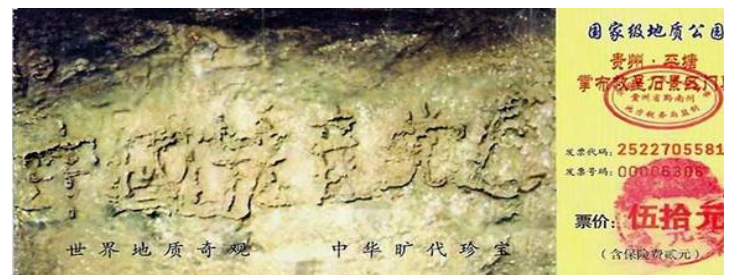 中國共产党亡
世界地质奇观
中华旷代珍宝
国家级地质公园
贵州·平塘
掌布救星石景区门
贵州省黔南州
地方税务局监制
发票代码: 2522705581
发票号码: 00006306
票价: 伍拾元
(含保险费贰元)